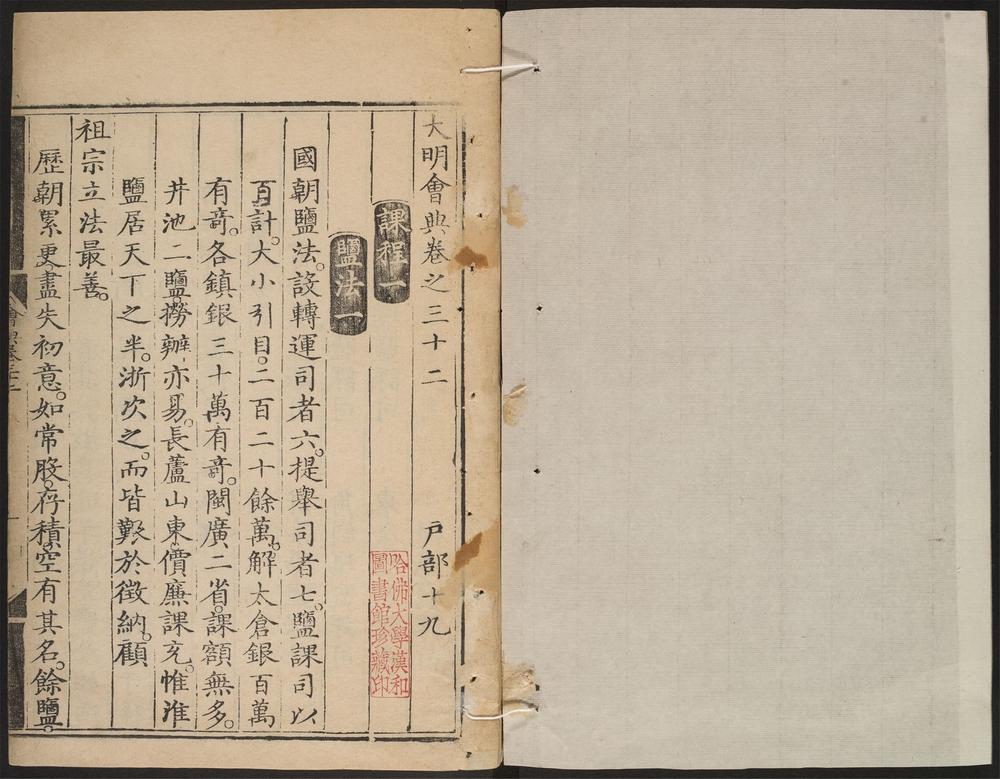 大明會典卷之三十二 戶部十九
課程一
哈佛大學漢和
圖書館珍藏印
鹽法一
國朝鹽法。設轉運司者六。提舉司者七。鹽課司以
百計。大小引目。二百二十餘萬。解太倉銀百萬
有竒。各鎮銀三十萬有竒。閩廣二省。課額無多。
井池二鹽。撈辦亦易。長蘆山東。價廉課充。惟淮
鹽居天下之半。浙次之。而皆艱於徵納。顧
祖宗立法最善。
歷朝累更。盡失初意。如常股。存積。空有其名。餘鹽。